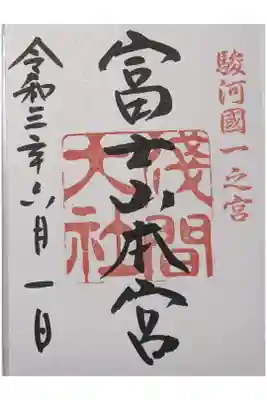 駿河國一之宮
富士山本宮
淺間大社
令和三年六月一日